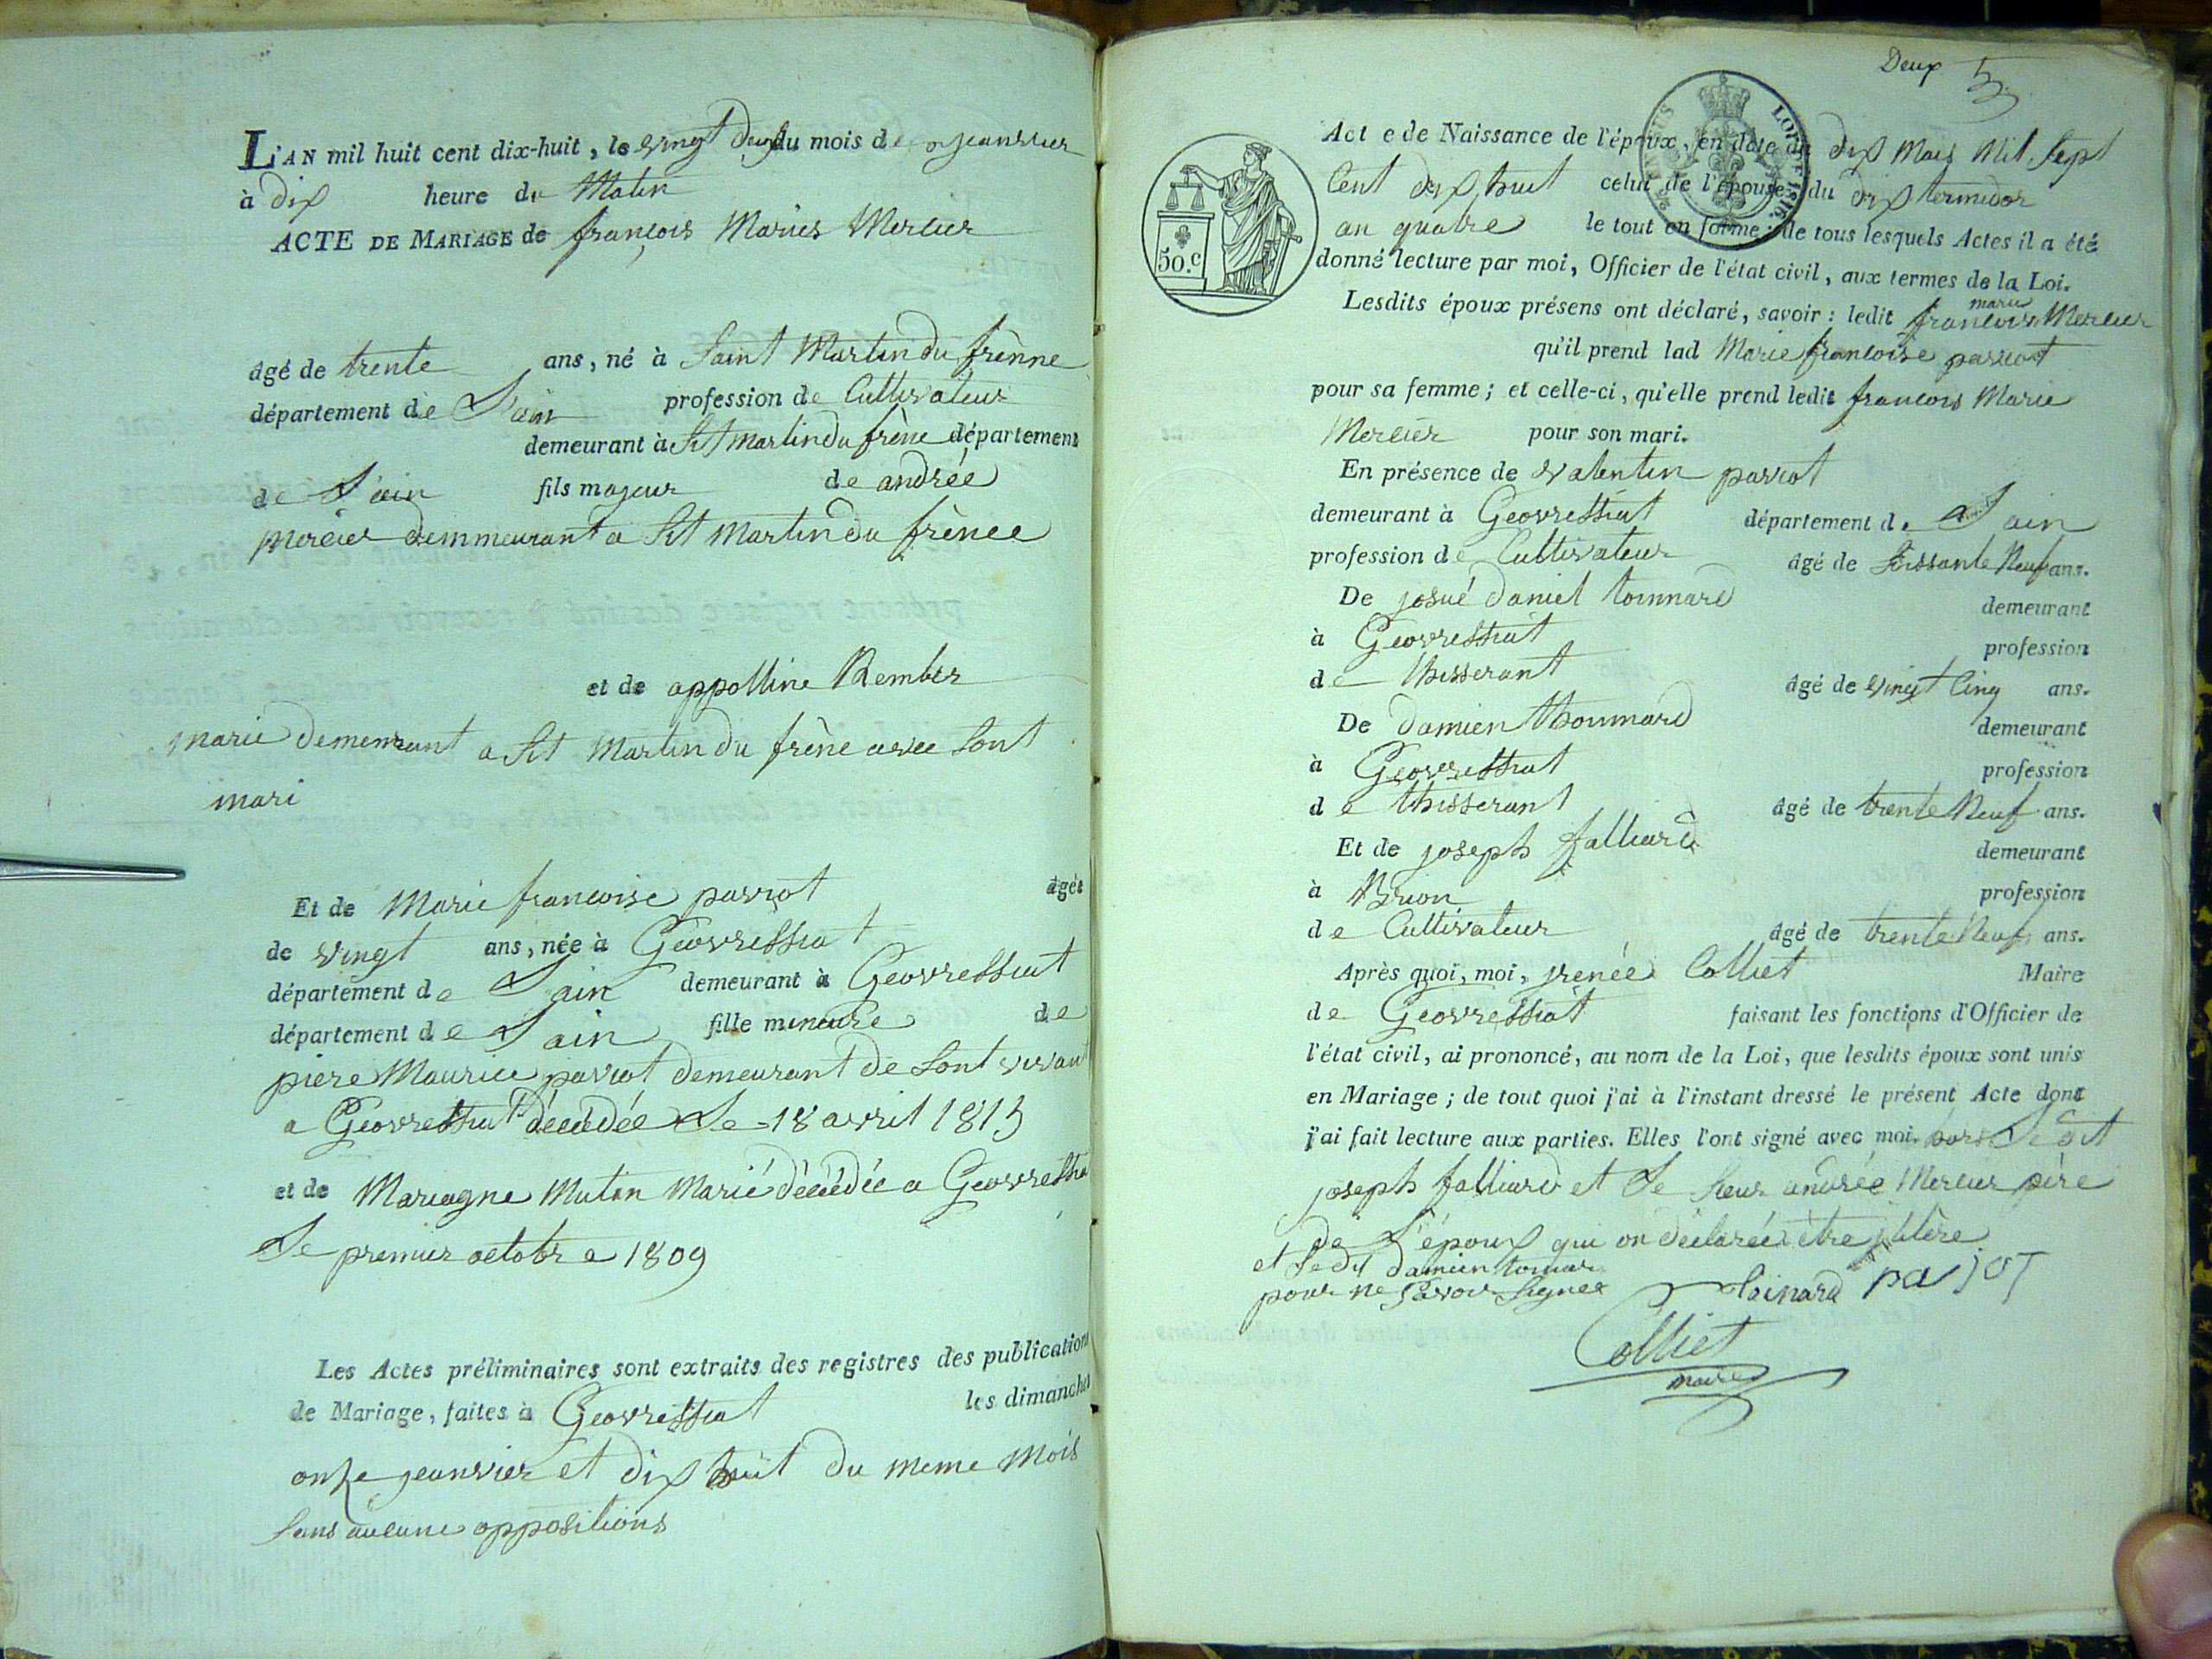 L'AN mil huit cent dix-huit, le vingt deux du mois de jeanvier
à dix heure du Matin
ACTE DE MARIAGE de françois Maries Mercier
agé de trente ans, né à Saint Martin du frènne
département de L'ain profession de Cultivateur
demeurant à St Martin du frène département
de L'ain fils majeur de andrée
mercier demmeurant a St Martin du frènee
et de appolline Rember
marie demeurant a St Martin du frène avec sont
mari
Et de Marie francoise parrot agée
de vingt ans, née à Géovressiat
département de L'ain demeurant à Geovressiat
département de L'ain fille mineure de
piere Maurice parrot demeurant de sont vivant
a Geovressiat décédée Le 18 avril 1813
et de Mariagne Muton Marié décédée a Geovressia
Le premier octobre 1809
Les Actes préliminaires sont extraits des registres des publications
de Mariage, faites à Geovressiat les dimanches
onze jeanvier et dix huit du meme Mois
sans aucune oppositions
Deux
Acte de Naissance de l'époux, en date du dix Mars Mil sept
LOI DE 1816.
Cent dix huit celui de l'épouse du dix termidor
an quatre le tout en forme: de tous lesquels Actes il a été
50.c
donné lecture par moi, Officier de l'état civil, aux termes de la Loi.
marie
Lesdits époux présens ont déclaré, savoir: ledit francois Mercier
qu'il prend lad Marie francoise parrot
pour sa femme; et celle-ci, qu'elle prend ledit francois Marie
Mercier pour son mari.
En présence de valentin parrot
demeurant à Geovressiat département de L'ain
profession de Cultivateur agé de soissante Neuf ans.
De josué daniel toinnard demeurant
à Geovressiat profession
de thisserant agé de vingt Cinq ans.
De damien thoinnard demeurant
à Geovressiat profession
de thisserant agé de trente Neuf ans.
Et de joseph falliard demeurant
à Brion profession
de Cultivateur agé de trente Neuf ans.
Après quoi, moi, jrenée Colliet Maire
de Geovressiat faisant les fonctions d'Officier de
l'état civil, ai prononcé, au nom de la Loi, que lesdits époux sont unis
en Mariage; de tout quoi j'ai à l'instant dressé le présent Acte dont
j'ai fait lecture aux parties. Elles l'ont signé avec moi. hors Le dit
joseph falliard et Le sieur andrée Mercier père
de L'époux qui on déclarée être jlitère
et Ledit damien toinar
pour ne savoir signer toinard pajot
Colliet
maire